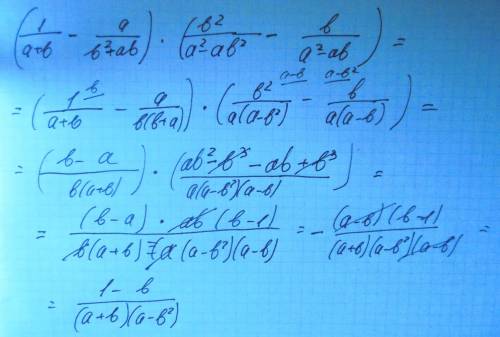 (1/(a+b) - a/(b²+ab)) · (b²/(a²-ab²) - b/(a²-ab)) =
= (1^b/(a+b) - a/(b(b+a))) · (b²^(a-b)/(a(a-b²)) - b^(a-b²)/(a(a-b))) =
= ((b-a)/(b(a+b))) · ((ab²-b³-ab+b³)/(a(a-b²)(a-b))) =
= (b-a)·ab(b-1)/(b(a+b)·a(a-b²)(a-b)) = -(a-b)(b-1)/((a+b)(a-b²)(a-b)) =
= (1-b)/((a+b)(a-b²))